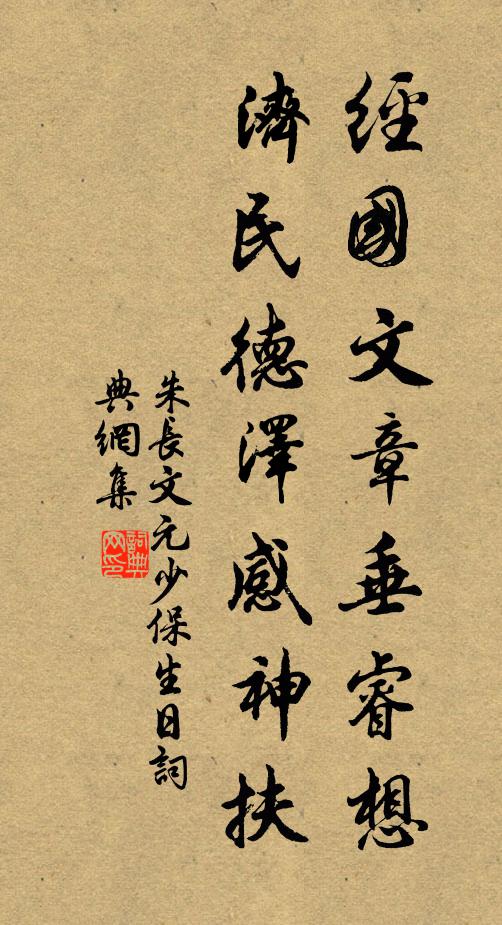 經國文章垂睿想
濟民德澤感神扶
朱長文元少保生日詞
典網集
詞典
网印